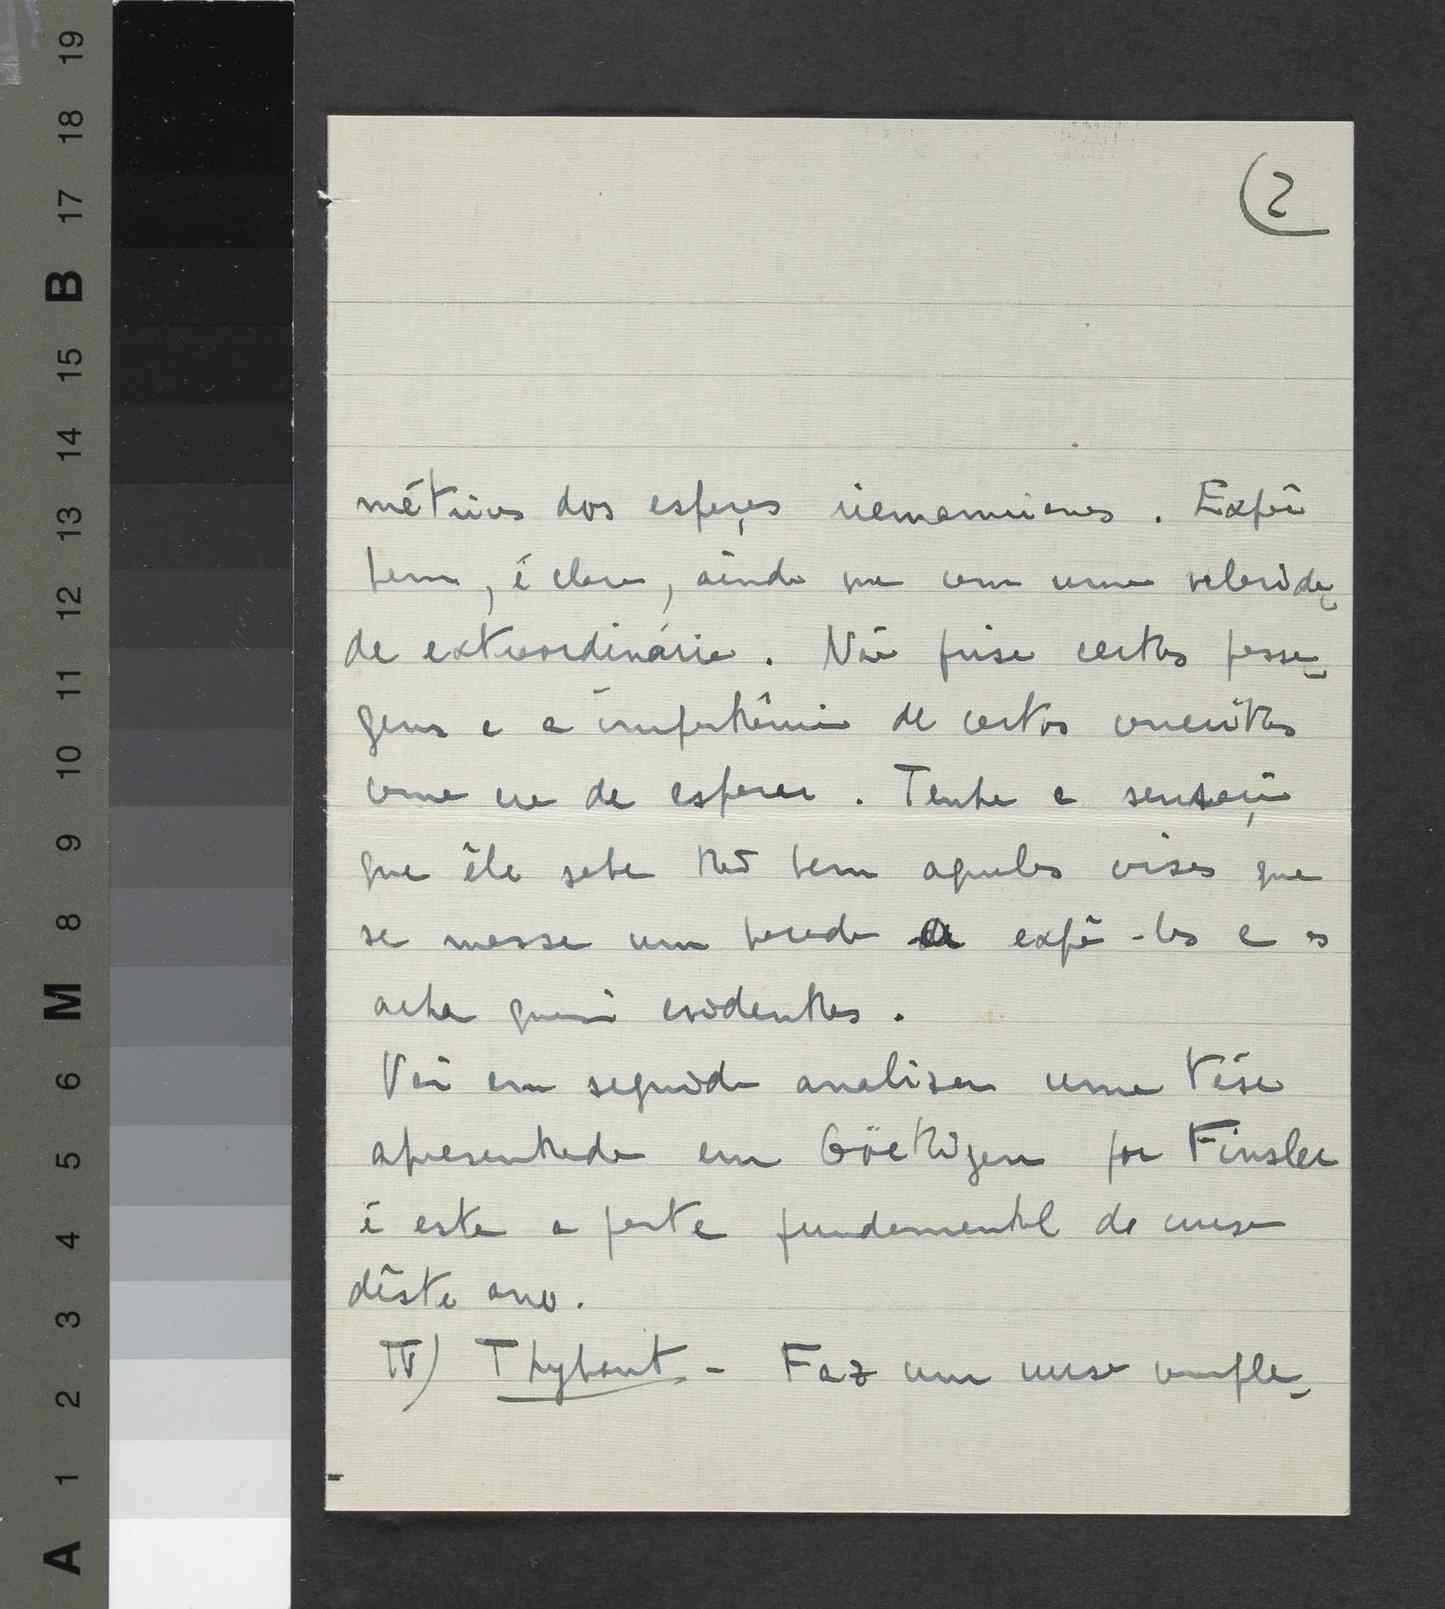 19
18
17
B
15
14
13
12
11
10
9
8
M
6
5
4
3
2
1
A
2
métricos dos espaços riemannianos. Expõe
bem, é claro, ainda que com uma velocida-
de extraordinária. Não frisa certas passa-
gens e a importância de certos conceitos
como era de esperar. Tenho a sensação
que êle sabe tão bem aquelas coisas que
se massa um bocado a expô-las e as
acha quasi evidentes.
Vai em seguida analisar uma tése
apresentada em Göettigen por Finsler
é esta a parte fundamental do curso
dêste ano.
IV) Thybaut - Faz um curso comple-